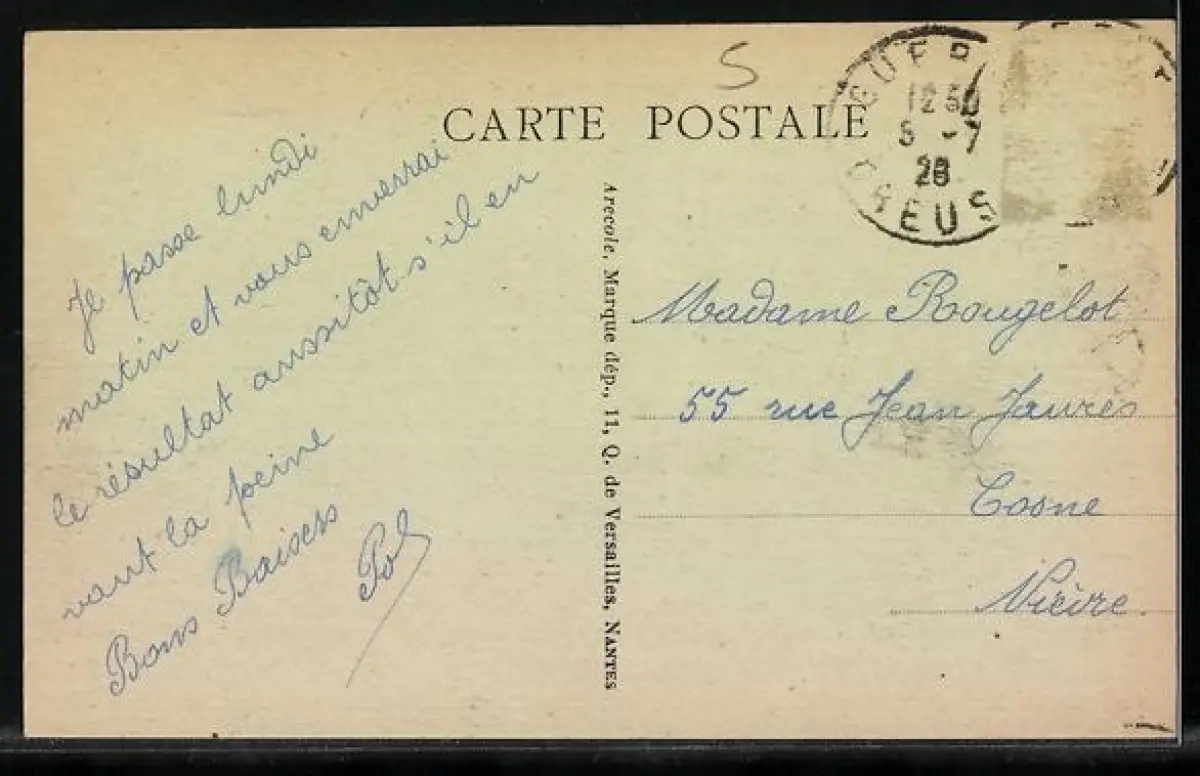 S
CARTE POSTALE
GUER
12 30
5 -7
28
CREUS
Je passe lundi
matin et vous enverrai
le résultat aussitôt s'il en
vaut la peine
Bons Baisers
Pol
Arecole, Marque dép., 11, Q. de Versailles, NANTES
Madame Rougelot
55 rue Jean Jaurès
Cosne
Nièvre.